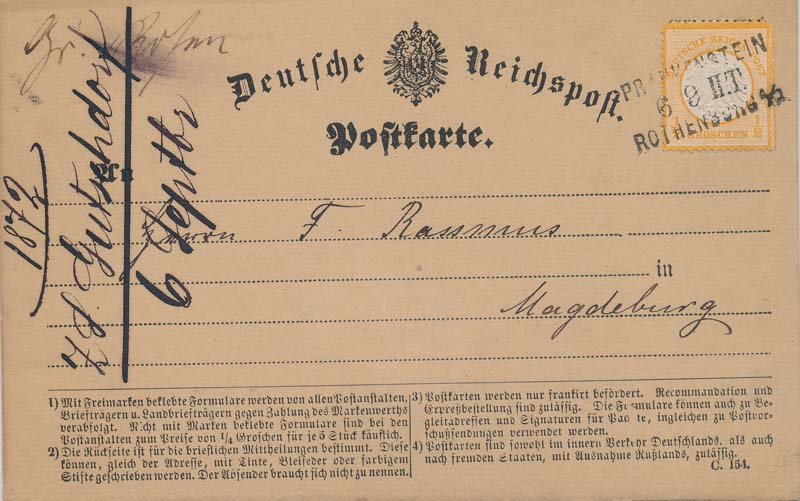 Deutsche Reichspost.
Postkarte.
DEUTSCHE REICHS-POST
1/2 GROSCHEN 1/2
FRANKENSTEIN
6 9 II.T.
ROTHENBURG a/O
An
Herrn F. Rassmus
in
Magdeburg
1872
Gutschdorf
6 Septbr
1) Mit Freimarken beklebte Formulare werden von allen Postanstalten,
Briefträgern u. Landbriefträgern gegen Zahlung des Markenwerths
verabfolgt. Nicht mit Marken beklebte Formulare sind bei den
Postanstalten zum Preise von 1/4 Groschen für je 5 Stück käuflich.
2) Die Rückseite ist für die brieflichen Mittheilungen bestimmt. Diese
können, gleich der Adresse, mit Tinte, Bleifeder oder farbigem
Stifte geschrieben werden. Der Absender braucht sich nicht zu nennen.
3) Postkarten werden nur frankirt befördert. Recommandation und
Expreßbestellung sind zulässig. Die Formulare können auch zu Be-
gleitadressen und Signaturen für Packete, ingleichen zu Postvor-
schußsendungen verwendet werden.
4) Postkarten sind sowohl im innern Verkehr Deutschlands, als auch
nach fremden Staaten, mit Ausnahme Rußlands, zulässig.
C. 154.